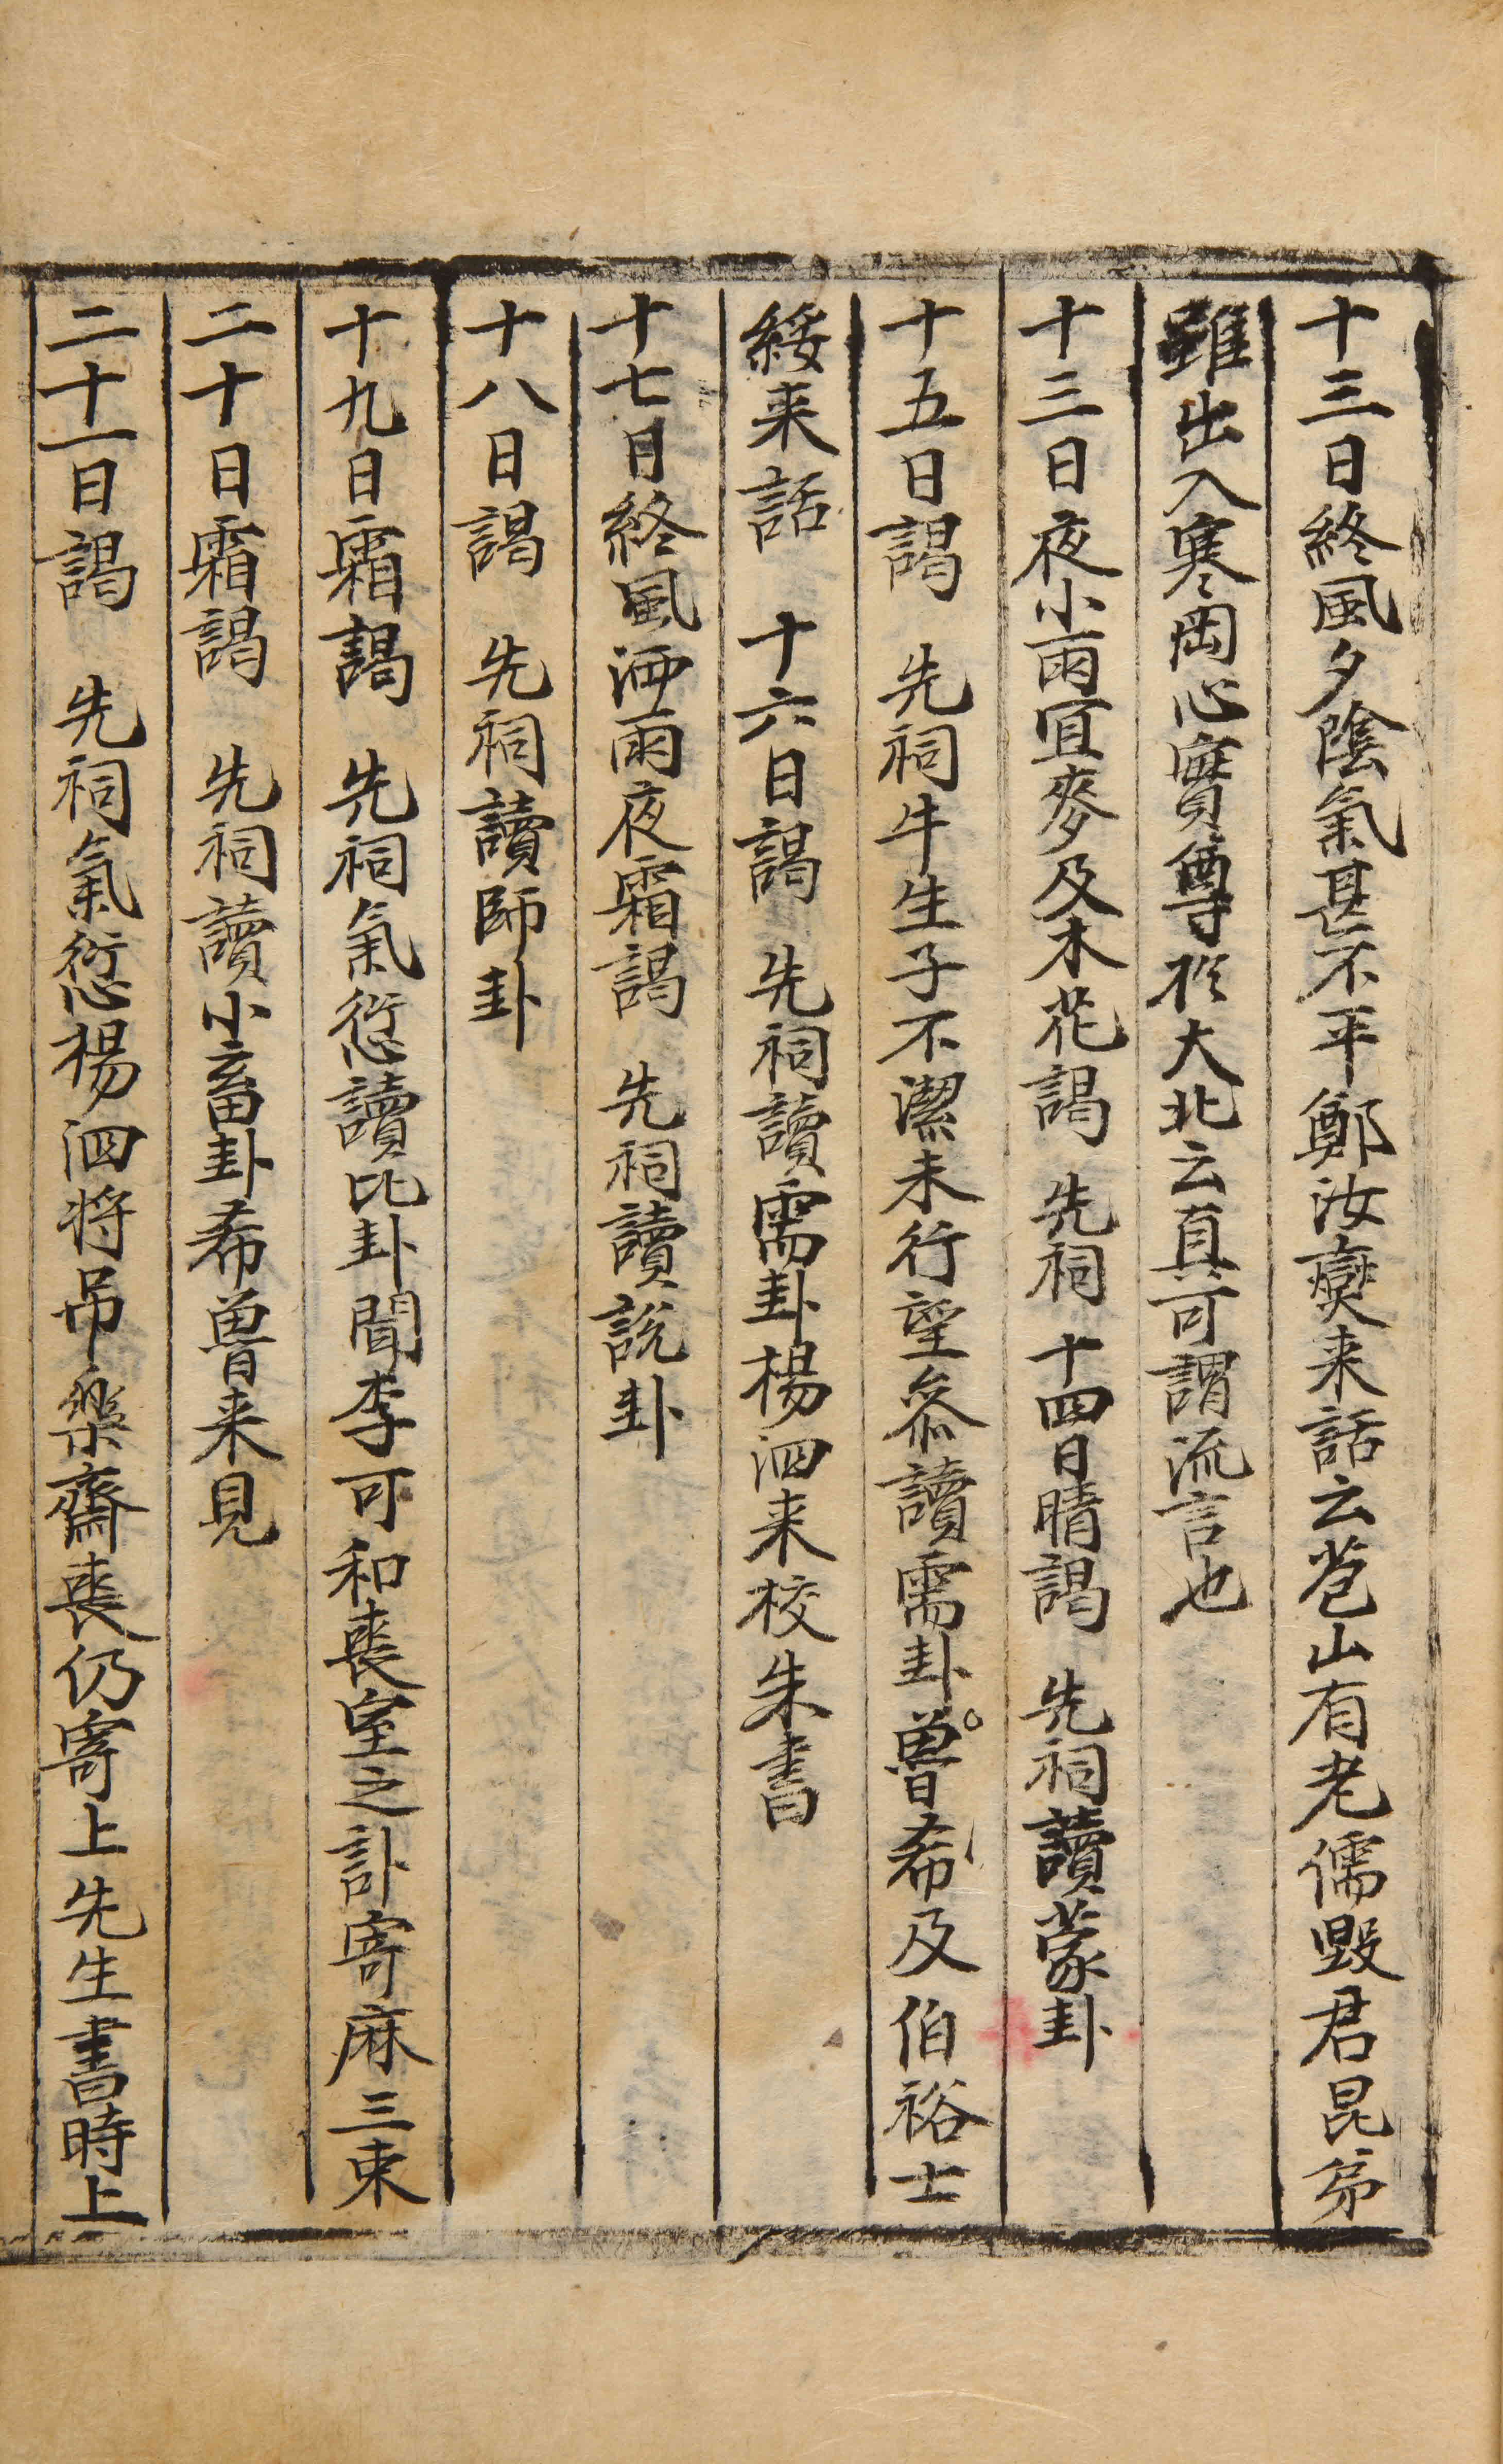 十三日終風夕陰氣甚不平鄭汝燮来話云苞山有老儒毀君昆弟
雖出入寒岡心實尊於大北云真可謂流言也
十三日夜小雨宜麥及木花謁 先祠 十四日晴謁 先祠讀蒙卦
十五日謁 先祠牛生子不潔未行望叅讀需卦曾希及伯裕士
綏来話 十六日謁 先祠讀需卦楊泗来校朱書
十七日終風洒雨夜霜謁 先祠讀說卦
十八日謁 先祠讀師卦
十九日霜謁 先祠氣愆讀比卦聞李可和喪室之訃寄麻三束
二十日霜謁 先祠讀小畜卦希曾来見
二十一日謁 先祠氣愆楊泗将吊樂齋喪仍寄上先生書時上